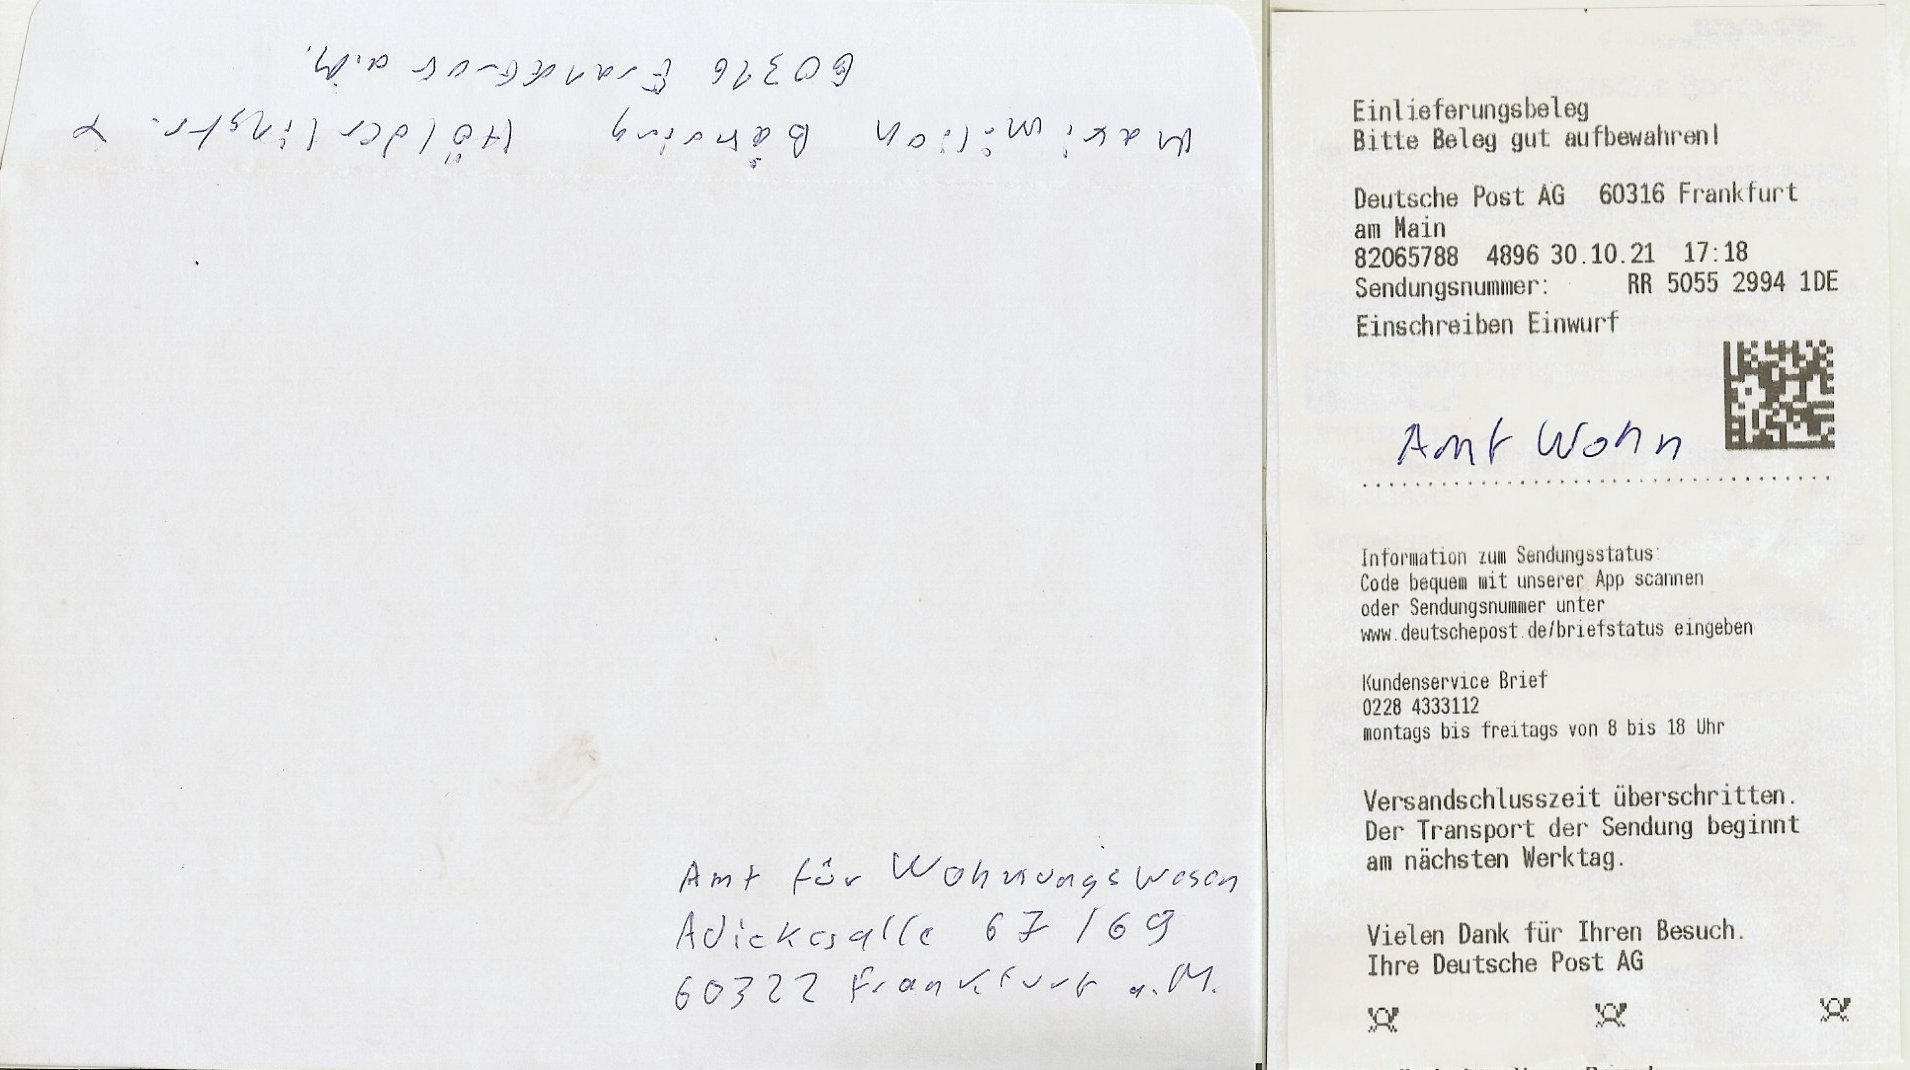 Maximilian Bähring Hölderlinstr. 4
60316 Frankfurt a.M.
Amt für Wohnungswesen
Adickesalle 67/69
60322 Frankfurt a.M.
Einlieferungsbeleg
Bitte Beleg gut aufbewahren!
Deutsche Post AG 60316 Frankfurt
am Main
82065788 4896 30.10.21 17:18
Sendungsnummer: RR 5055 2994 1DE
Einschreiben Einwurf
Amt Wohn
Information zum Sendungsstatus:
Code bequem mit unserer App scannen
oder Sendungsnummer unter
www.deutschepost.de/briefstatus eingeben
Kundenservice Brief
0228 4333112
montags bis freitags von 8 bis 18 Uhr
Versandschlusszeit überschritten.
Der Transport der Sendung beginnt
am nächsten Werktag.
Vielen Dank für Ihren Besuch.
Ihre Deutsche Post AG